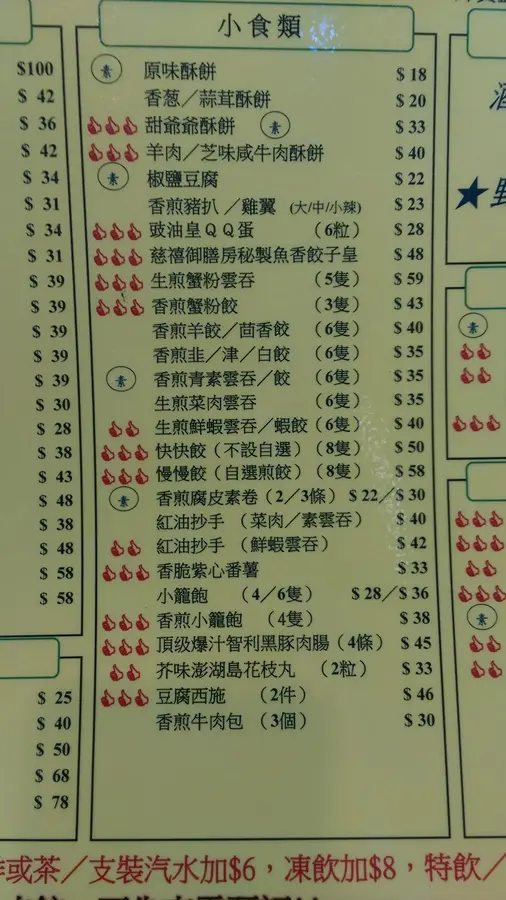 小食類
素 原味酥餅 $18
香葱／蒜茸酥餅 $20
甜爺爺酥餅 素 $33
羊肉／芝味咸牛肉酥餅 $40
素 椒鹽豆腐 $22
香煎豬扒／雞翼 (大/中/小辣) $23
豉油皇QQ蛋 (6粒) $28
慈禧御膳房秘製魚香餃子皇 $48
生煎蟹粉雲吞 (5隻) $59
香煎蟹粉餃 (3隻) $43
香煎羊餃／茴香餃 (6隻) $40
香煎韭／津／白餃 (6隻) $35
素 香煎青素雲吞／餃 (6隻) $35
生煎菜肉雲吞 (6隻) $35
生煎鮮蝦雲吞／蝦餃 (6隻) $40
快快餃（不設自選）(8隻) $50
慢慢餃（自選煎餃）(8隻) $58
素 香煎腐皮素卷 (2／3條) $22／$30
紅油抄手（菜肉／素雲吞） $40
紅油抄手（鮮蝦雲吞） $42
香脆紫心番薯 $33
小籠飽 (4／6隻) $28／$36
香煎小籠飽 (4隻) $38
頂级爆汁智利黑豚肉腸 (4條) $45
芥味澎湖島花枝丸 (2粒) $33
豆腐西施 (2件) $46
香煎牛肉包 (3個) $30
$100
$ 42
$ 36
$ 42
$ 34
$ 31
$ 34
$ 31
$ 39
$ 39
$ 39
$ 39
$ 39
$ 30
$ 28
$ 38
$ 43
$ 48
$ 38
$ 48
$ 58
$ 58
$ 25
$ 40
$ 50
$ 68
$ 78
酒
★野
素
素
或茶／支裝汽水加$6，凍飲加$8，特飲／